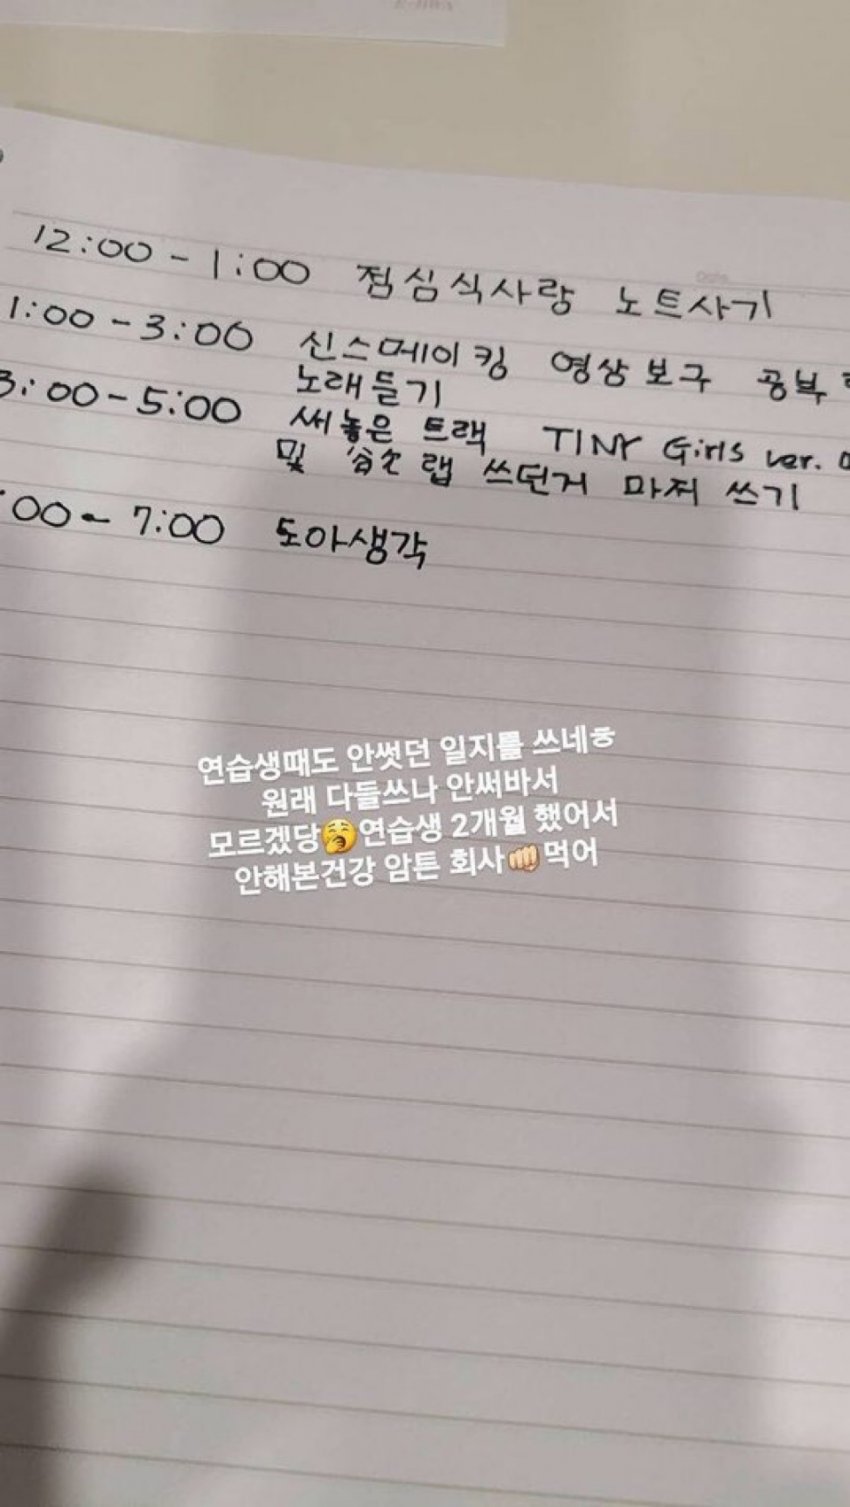 12:00 - 1:00 점심식사랑 노트사기
1:00 - 3:00 신스메이킹 영상보구 공부
노래듣기
3:00 - 5:00 써놓은 트랙 TINY Girls ver.
및 랩 쓰던거 마저 쓰기
:00 - 7:00 도아생각
연습생때도 안썻던 일지를 쓰네ㅎ
원래 다들쓰나 안써바서
모르겠당🥱연습생 2개월 했어서
안해본건강 암튼 회사👊🏻먹어